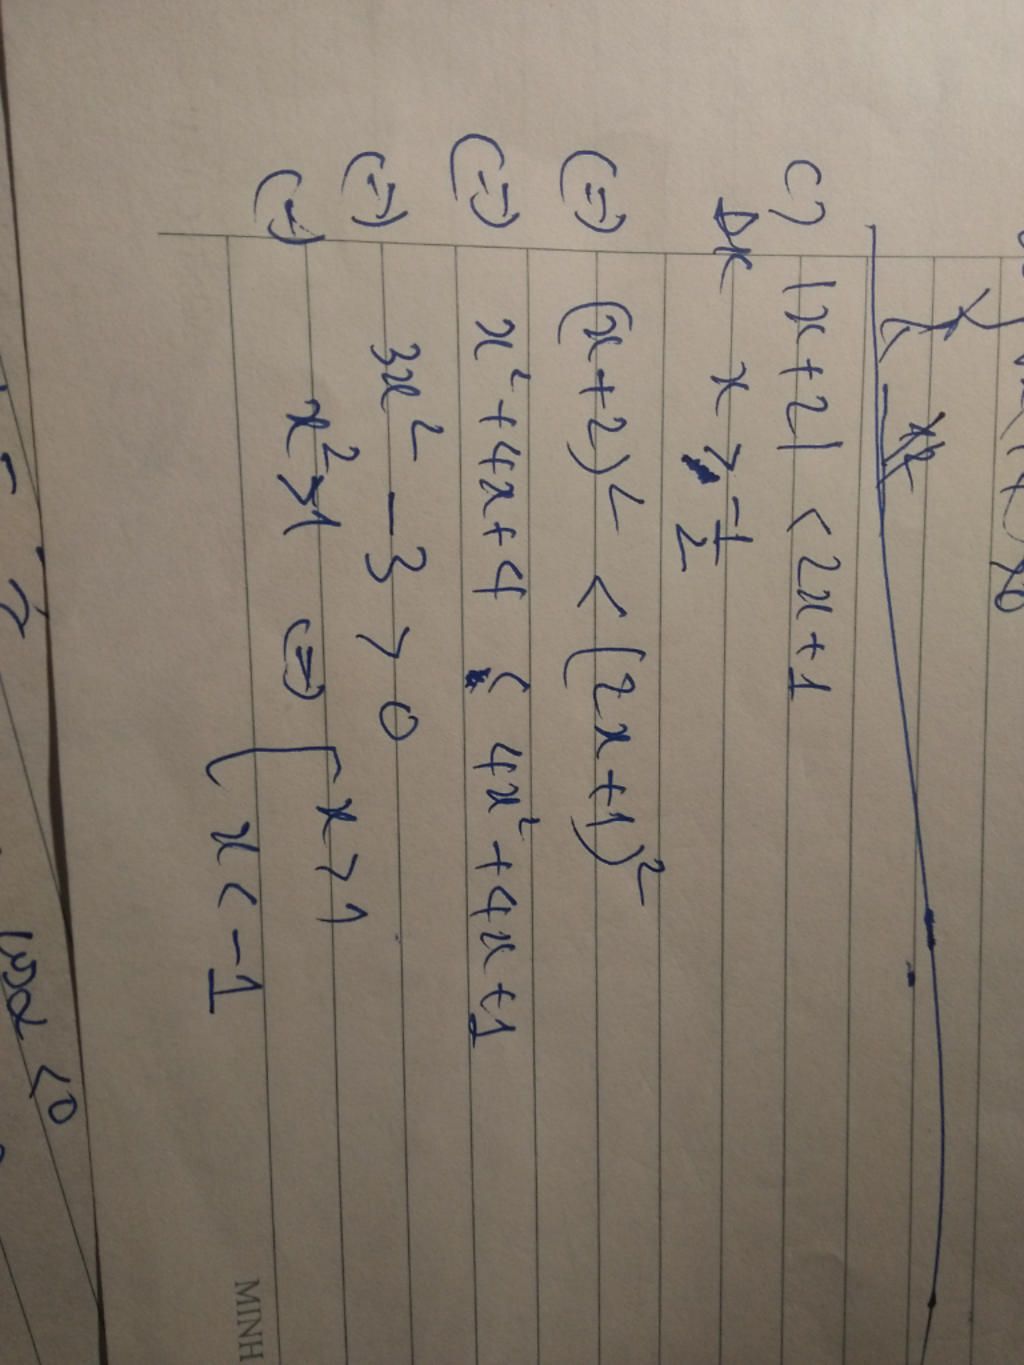 c) |x+2| < 2x+1
ĐK x > -1/2
(=) (x+2)² < (2x+1)²
(=) x²+4x+4 < 4x²+4x+1
(=) 3x² - 3 > 0
(=) x² > 1 (=) [ x > 1
x < -1
cosα < 0
MINH